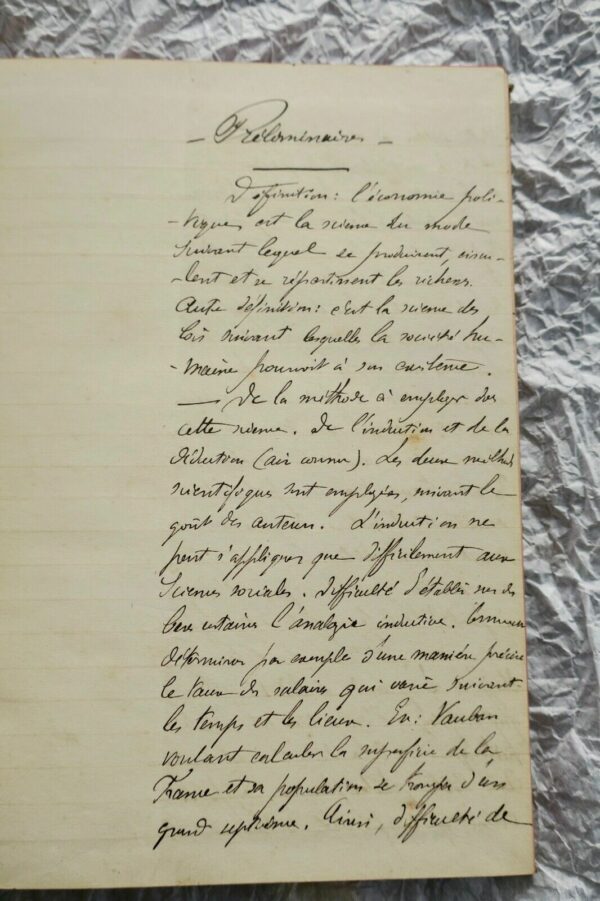 - Préliminaires -
Définition : l'économie poli-
-tique est la science du mode
suivant lequel se produisent, circu-
-lent et se répartissent les richesses.
Autre définition : c'est la science des
lois suivant lesquelles la société hu-
-maine pourvoit à son existence.
— De la méthode à employer dans
cette science. De l'induction et de la
déduction (air connu). Les deux méthodes
scientifiques sont employées, suivant le
goût des auteurs. L'induction ne
peut s'appliquer que difficilement aux
sciences sociales. Difficulté d'établir sur des
bases certaines l'analogie inductive. Comment
déterminer par exemple d'une manière précise
le taux des salaires qui varie suivant
les temps et les lieux. Ex : Vauban
voulant calculer la superficie de la
France et sa population se trompa d'un
grand septième. Ainsi, difficulté de